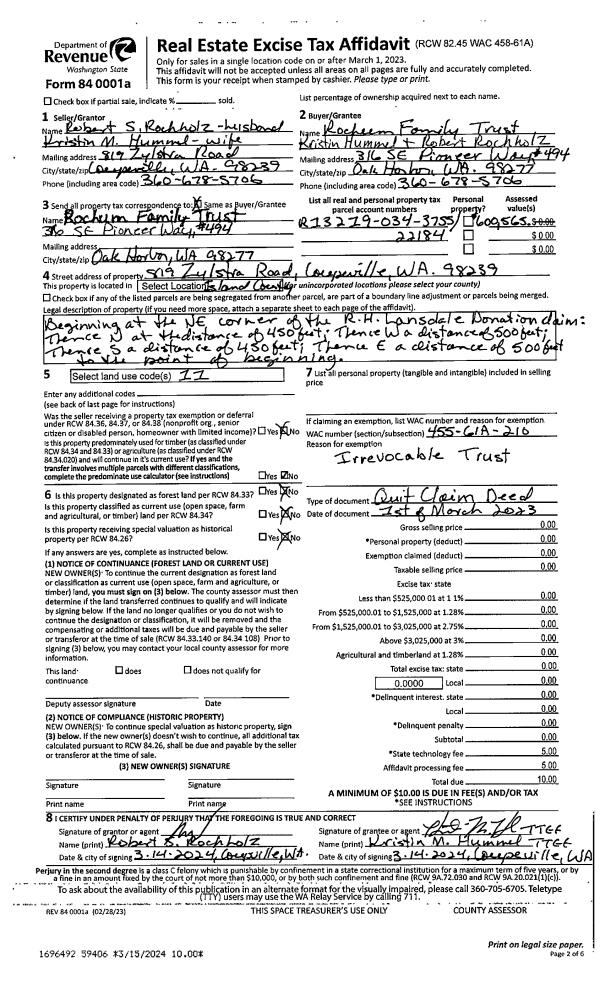 Department of
Revenue
Washington State
Form 84 0001a
Real Estate Excise Tax Affidavit (RCW 82.45 WAC 458-61A)
Only for sales in a single location code on or after March 1, 2023.
This affidavit will not be accepted unless all areas on all pages are fully and accurately completed.
This form is your receipt when stamped by cashier. Please type or print.
Check box if partial sale, indicate % ______ sold.
List percentage of ownership acquired next to each name.
1 Seller/Grantor
Name Robert S. Rochholz - husband
Kristin M. Hummel - wife
Mailing address 819 Zylstra Road
City/state/zip Coupeville, WA. 98239
Phone (including area code) 360-678-5706
2 Buyer/Grantee
Name Rocheum Family Trust
Kristin Hummel + Robert Rochholz
Mailing address 316 SE Pioneer Way #494
City/state/zip Oak Harbor, WA. 98277
Phone (including area code) 360-678-5706
3 Send all property tax correspondence to: Same as Buyer/Grantee
Name Rocheum Family Trust
316 SE Pioneer Way, #494
Mailing address
City/state/zip Oak Harbor, WA 98277
List all real and personal property tax parcel account numbers
Personal property?
Assessed value(s)
R13219-034-3755 600,565. $0.00
22184 $ 0.00
$ 0.00
4 Street address of property 819 Zylstra Road, Coupeville, WA. 98239
This property is located in Select Location Island County (for unincorporated locations please select your county)
Check box if any of the listed parcels are being segregated from another parcel, are part of a boundary line adjustment or parcels being merged.
Legal description of property (if you need more space, attach a separate sheet to each page of the affidavit).
Beginning at the NE corner of the R.H. Lansdale Donation claim:
Thence N at the distance of 450 feet; Thence W a distance of 500 feet;
Thence S a distance of 450 feet; Thence E a distance of 500 feet
to the point of beginning.
5 Select land use code(s) 11
Enter any additional codes
(see back of last page for instructions)
Was the seller receiving a property tax exemption or deferral
under RCW 84.36, 84.37, or 84.38 (nonprofit org., senior
citizen or disabled person, homeowner with limited income)? Yes No
Is this property predominately used for timber (as classified under
RCW 84.34 and 84.33) or agriculture (as classified under RCW
84.34.020) and will continue in it's current use? If yes and the
transfer involves multiple parcels with different classifications,
complete the predominate use calculator (see instructions) Yes No
6 Is this property designated as forest land per RCW 84.33? Yes No
Is this property classified as current use (open space, farm
and agricultural, or timber) land per RCW 84.34? Yes No
Is this property receiving special valuation as historical
property per RCW 84.26? Yes No
If any answers are yes, complete as instructed below.
(1) NOTICE OF CONTINUANCE (FOREST LAND OR CURRENT USE)
NEW OWNER(S): To continue the current designation as forest land
or classification as current use (open space, farm and agriculture, or
timber) land, you must sign on (3) below. The county assessor must then
determine if the land transferred continues to qualify and will indicate
by signing below. If the land no longer qualifies or you do not wish to
continue the designation or classification, it will be removed and the
compensating or additional taxes will be due and payable by the seller
or transferor at the time of sale (RCW 84.33.140 or 84.34 108) Prior to
signing (3) below, you may contact your local county assessor for more
information.
This land: does does not qualify for
continuance
Deputy assessor signature Date
(2) NOTICE OF COMPLIANCE (HISTORIC PROPERTY)
NEW OWNER(S): To continue special valuation as historic property, sign
(3) below. If the new owner(s) doesn't wish to continue, all additional tax
calculated pursuant to RCW 84.26, shall be due and payable by the seller
or transferor at the time of sale.
(3) NEW OWNER(S) SIGNATURE
Signature Signature
Print name Print name
7 List all personal property (tangible and intangible) included in selling
price
If claiming an exemption, list WAC number and reason for exemption
WAC number (section/subsection) 455-61A-210
Reason for exemption
Irrevocable Trust
Type of document Quit Claim Deed
Date of document 1st of March 2023
Gross selling price 0.00
*Personal property (deduct) 0.00
Exemption claimed (deduct) 0.00
Taxable selling price 0.00
Excise tax: state
Less than $525,000.01 at 1.1% 0.00
From $525,000.01 to $1,525,000 at 1.28% 0.00
From $1,525,000.01 to $3,025,000 at 2.75% 0.00
Above $3,025,000 at 3% 0.00
Agricultural and timberland at 1.28% 0.00
Total excise tax: state 0.00
0.0000 Local 0.00
*Delinquent interest. state 0.00
Local 0.00
*Delinquent penalty 0.00
Subtotal 0.00
*State technology fee 5.00
Affidavit processing fee 5.00
Total due 10.00
A MINIMUM OF $10.00 IS DUE IN FEE(S) AND/OR TAX
*SEE INSTRUCTIONS
8 I CERTIFY UNDER PENALTY OF PERJURY THAT THE FOREGOING IS TRUE AND CORRECT
Signature of grantor or agent
Name (print) Robert S. Rochholz
Date & city of signing 3-14-2024, Coupeville, WA.
Signature of grantee or agent TTEE
Name (print) Kristin M. Hummel TTEE
Date & city of signing 3-14-2024, Coupeville, WA
Perjury in the second degree is a class C felony which is punishable by confinement in a state correctional institution for a maximum term of five years, or by
a fine in an amount fixed by the court of not more than $10,000, or by both such confinement and fine (RCW 9A.72.030 and RCW 9A.20.021(1)(c)).
To ask about the availability of this publication in an alternate format for the visually impaired, please call 360-705-6705. Teletype
(TTY) users may use the WA Relay Service by calling 711.
REV 84 0001a (02/28/23) THIS SPACE TREASURER'S USE ONLY COUNTY ASSESSOR
Print on legal size paper.
Page 2 of 6
1696492 59406 *3/15/2024 10.00*